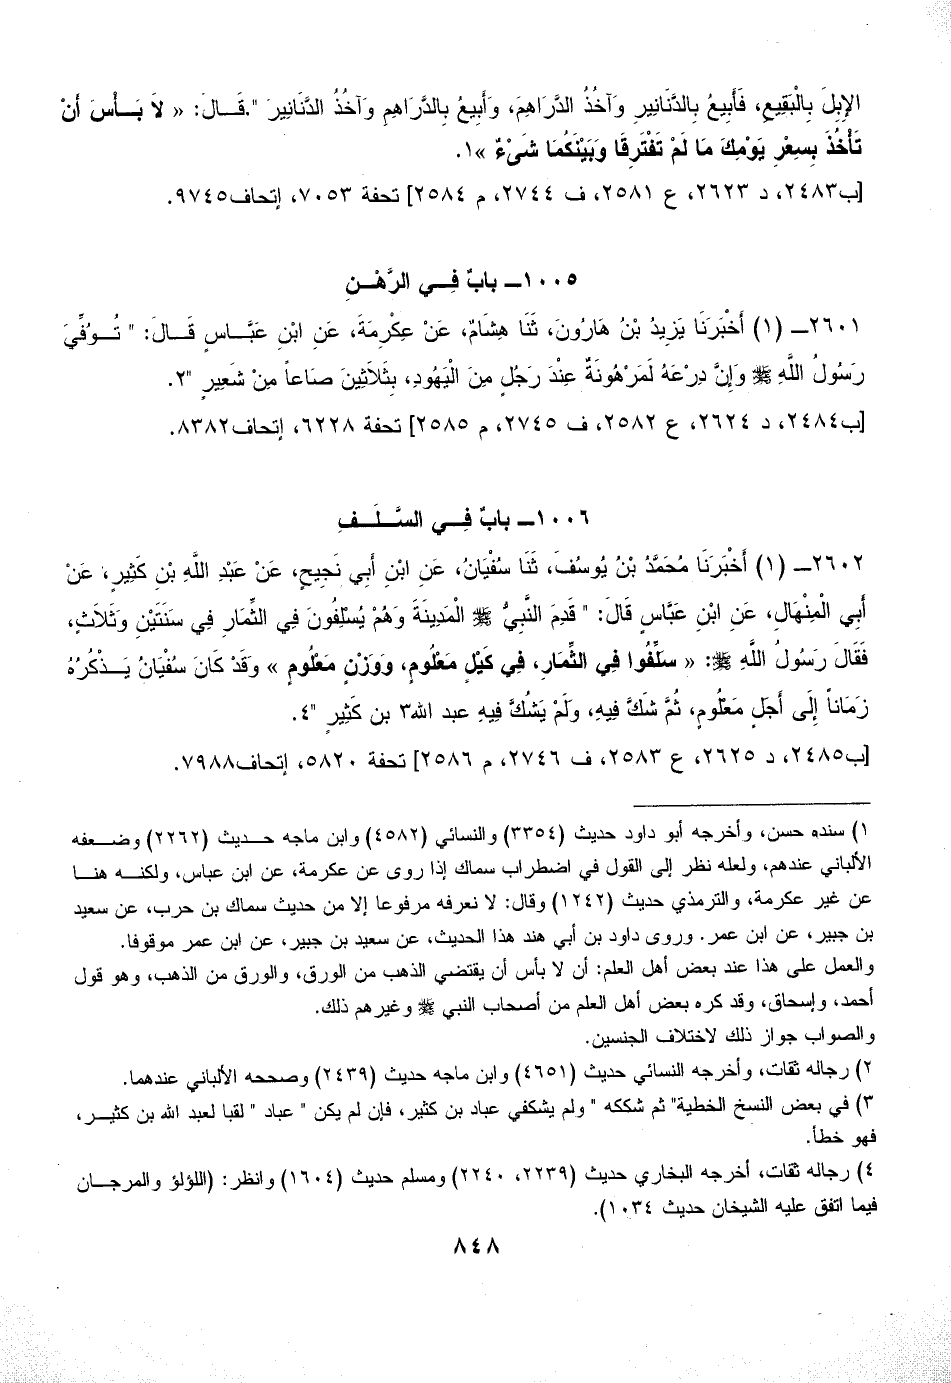 الإِبلَ بِالْبَقِيعِ، فَأَبِيعُ بِالدَّنَانِيرِ وَآخُذُ الدَّرَاهِمَ، وَأَبِيعُ بِالدَّرَاهِمِ وَآخُذُ الدَّنَانِيرَ ".قَـالَ: « لاَ بَـأْسَ أَنْ
تَأْخُذَ بِسِعْرِ يَوْمِكَ مَا لَمْ تَفْتَرِقَا وَبَيْنَكُمَا شَىْءٌ »١.
[ب٢٤٨٣، د ٢٦٢٣، ع ٢٥٨١، ف ٢٧٤٤، م ٢٥٨٤] تحفة ٧٠٥٣، إتحاف٩٧٤٥.
١٠٠٥ــ بابٌ فِـي الرَّهْـنِ
٢٦٠١ــ (١) أَخْبَرَنَا يَزِيدُ بْنُ هَارُونَ، ثَنَا هِشَامٌ، عَنْ عِكْرِمَةَ، عَنِ ابْنِ عَبَّاسٍ قَـالَ: " تُـوُفِّيَ
رَسُولُ اللَّهِ ﷺ وَإِنَّ دِرْعَهُ لَمَرْهُونَةٌ عِنْدَ رَجُلٍ مِنَ الْيَهُودِ، بِثَلاَثِينَ صَاعاً مِنْ شَعِيرٍ "٢.
[ب٢٤٨٤، د ٢٦٢٤، ع ٢٥٨٢، ف ٢٧٤٥، م ٢٥٨٥] تحفة ٦٢٢٨، إتحاف٨٣٨٢.
١٠٠٦ــ بابٌ فِـي السَّـلَـفِ
٢٦٠٢ــ (١) أَخْبَرَنَا مُحَمَّدُ بْنُ يُوسُفَ، ثَنَا سُفْيَانُ، عَنِ ابْنِ أَبِي نَجِيحٍ، عَنْ عَبْدِ اللَّهِ بْنِ كَثِيرٍ، عَنْ
أَبِي الْمِنْهَالِ، عَنِ ابْنِ عَبَّاسٍ قَالَ: " قَدِمَ النَّبِيُّ ﷺ الْمَدِينَةَ وَهُمْ يُسْلِفُونَ فِي الثِّمَارِ فِي سَنَتَيْنِ وَثَلاَثٍ،
فَقَالَ رَسُولُ اللَّهِ ﷺ: « سَلِّفُوا فِي الثِّمَارِ، فِي كَيْلٍ مَعْلُومٍ، وَوَزْنٍ مَعْلُومٍ » وَقَدْ كَانَ سُفْيَانُ يَـذْكُرُهُ
زَمَاناً إِلَى أَجَلٍ مَعْلُومٍ، ثُمَّ شَكَّ فِيهِ، وَلَمْ يَشُكَّ فِيهِ عبد الله٣ بن كَثِيرٍ "٤.
[ب٢٤٨٥، د ٢٦٢٥، ع ٢٥٨٣، ف ٢٧٤٦، م ٢٥٨٦] تحفة ٥٨٢٠، إتحاف٧٩٨٨.
١) سنده حسن، وأخرجه أبو داود حديث (٣٣٥٤) والنسائي (٤٥٨٢) وابن ماجه حـديث (٢٢٦٢) وضـعفه
الألباني عندهم، ولعله نظر إلى القول في اضطراب سماك إذا روى عن عكرمة، عن ابن عباس، ولكنـه هنـا
عن غير عكرمة، والترمذي حديث (١٢٤٢) وقال: لا نعرفه مرفوعا إلا من حديث سماك بن حرب، عن سعيد
بن جبير، عن ابن عمر. وروى داود بن أبي هند هذا الحديث، عن سعيد بن جبير، عن ابن عمر موقوفا.
والعمل على هذا عند بعض أهل العلم: أن لا بأس أن يقتضي الذهب من الورق، والورق من الذهب، وهو قول
أحمد، وإسحاق، وقد كره بعض أهل العلم من أصحاب النبي ﷺ وغيرهم ذلك.
والصواب جواز ذلك لاختلاف الجنسين.
٢) رجاله ثقات، وأخرجه النسائي حديث (٤٦٥١) وابن ماجه حديث (٢٤٣٩) وصححه الألباني عندهما.
٣) في بعض النسخ الخطية" ثم شككه " ولم يشكفي عباد بن كثير، فإن لم يكن " عباد " لقبا لعبد الله بن كثيـر،
فهو خطأ.
٤) رجاله ثقات، أخرجه البخاري حديث (٢٢٣٩، ٢٢٤٠) ومسلم حديث (١٦٠٤) وانظر: (اللؤلؤ والمرجـان
فيما اتفق عليه الشيخان حديث ١٠٣٤).
٨٤٨